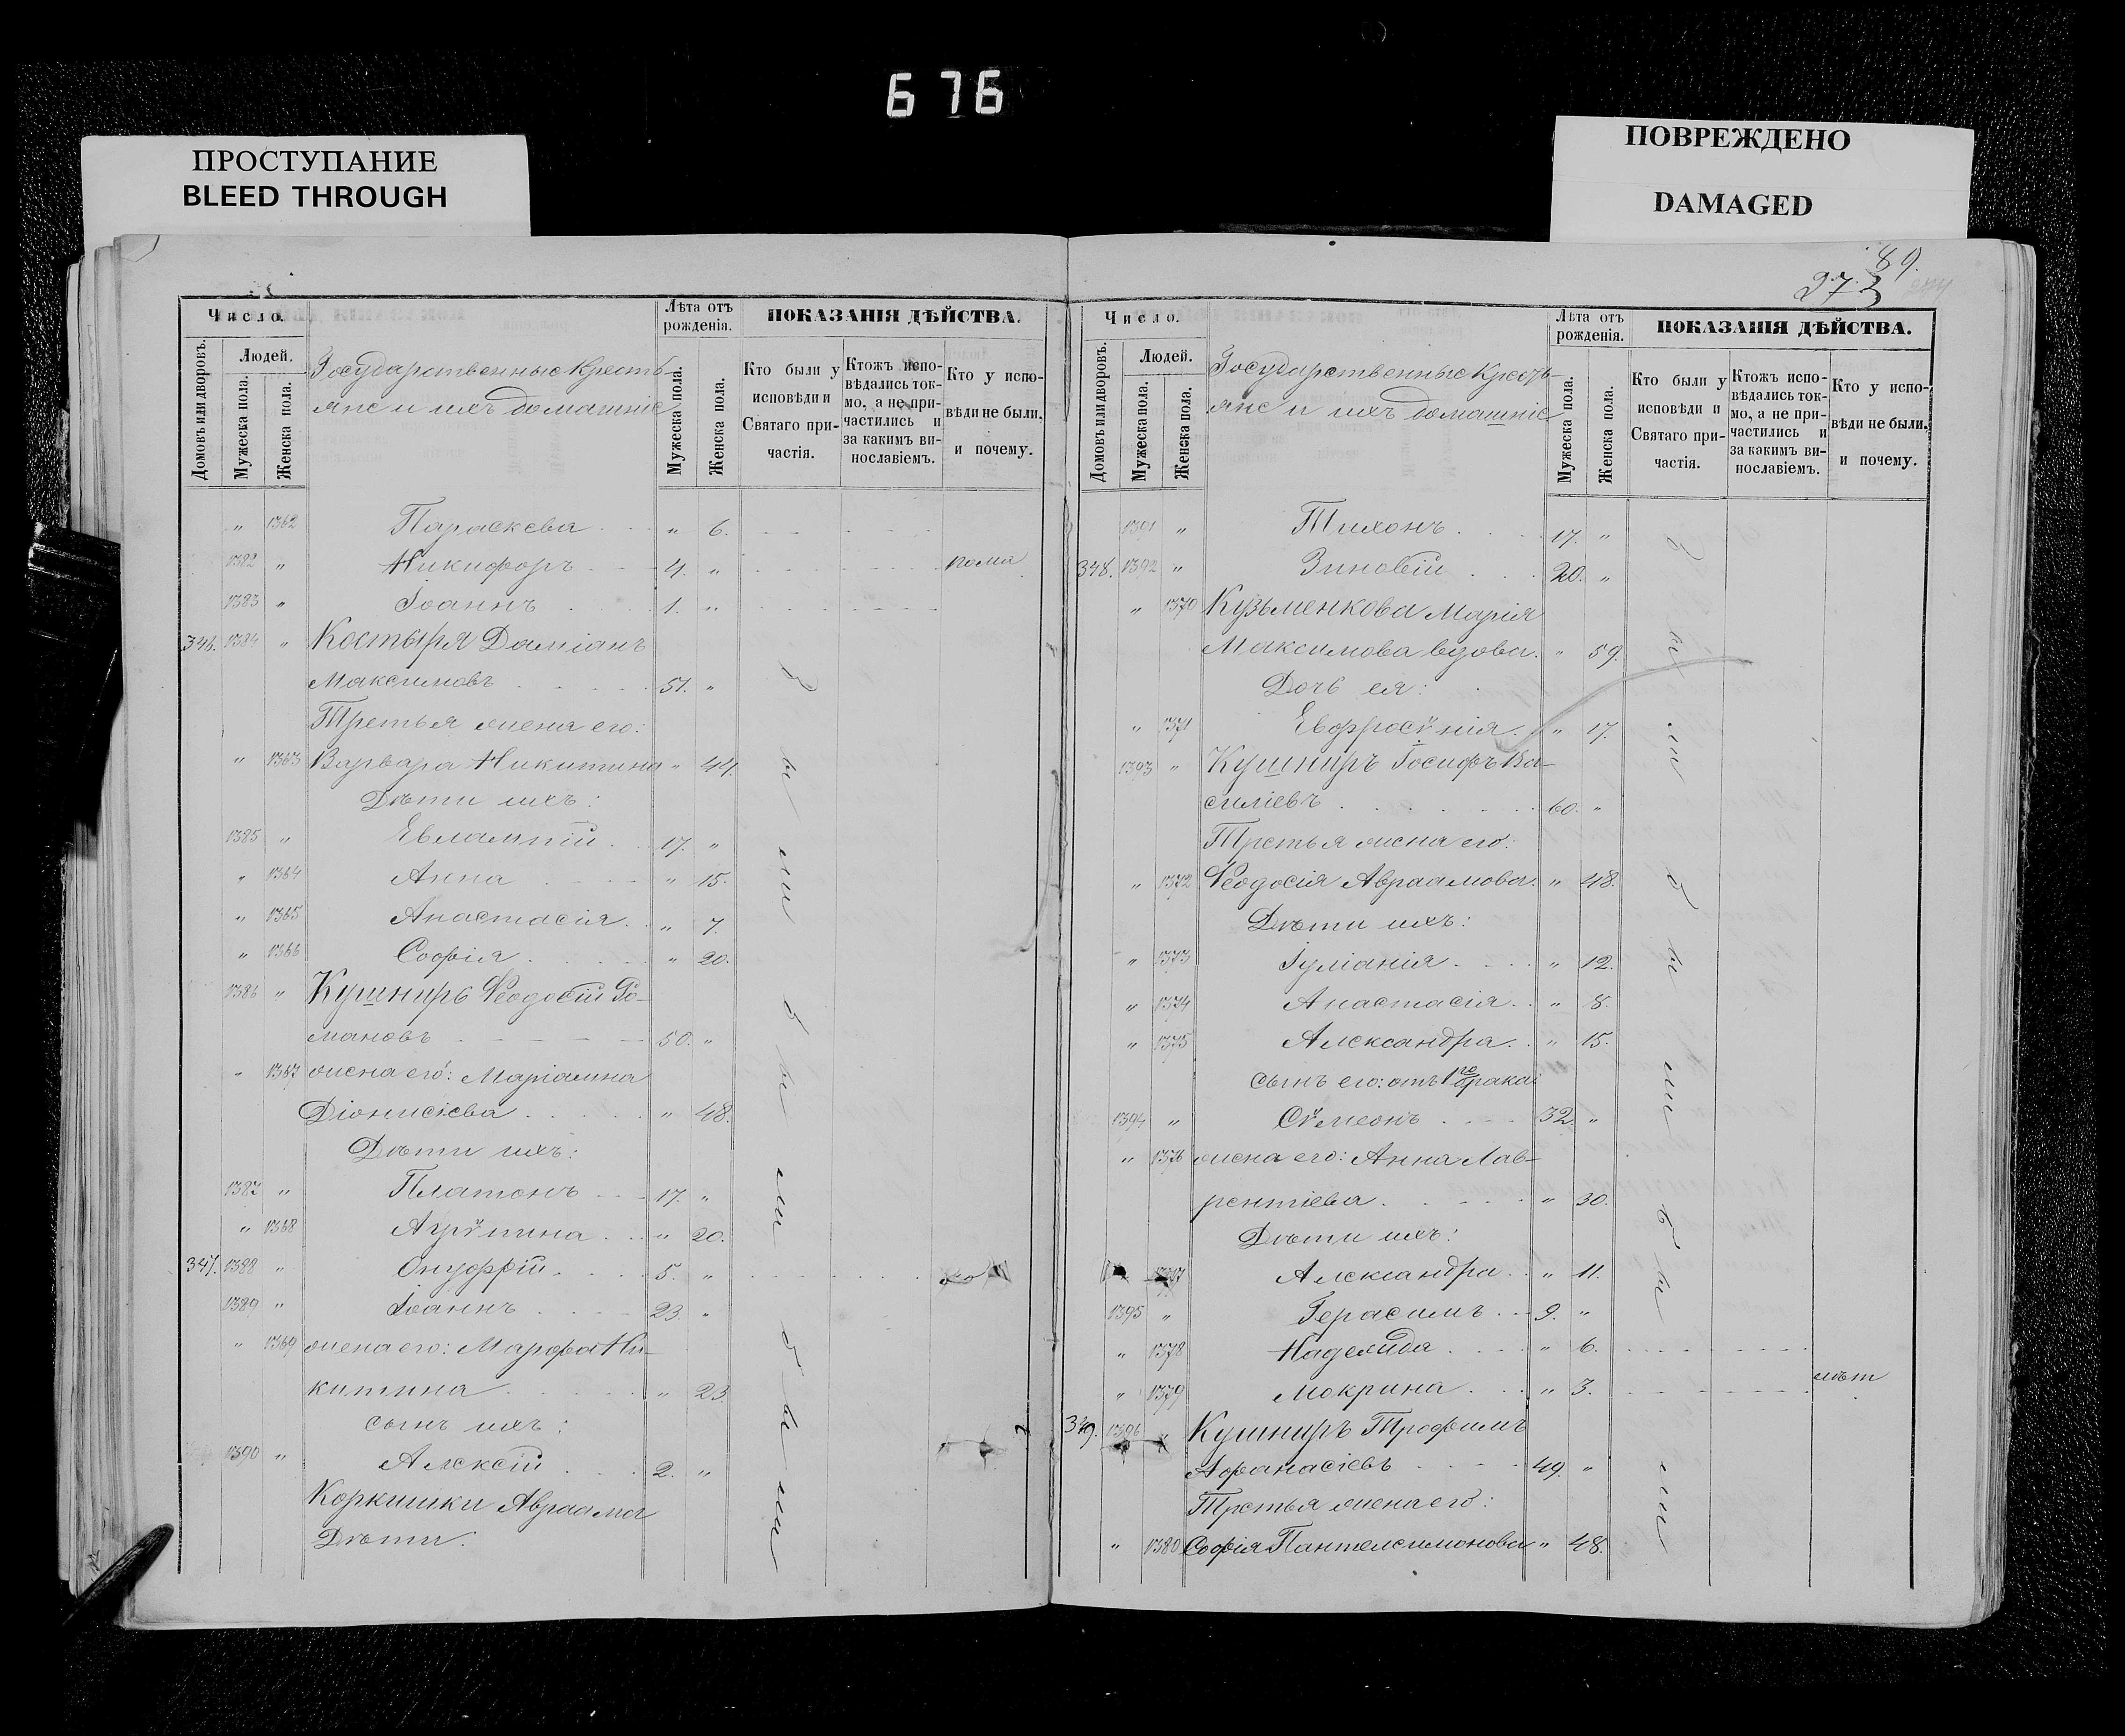 676
ПРОСТУПАНИЕ
BLEED THROUGH
ПОВРЕЖДЕНО
DAMAGED
Число.
Людей.
Домовъ или дворовъ.
Мужеска пола.
Женска пола.
Государственные Кресть-
яне и ихъ домашніе
Лѣта отъ рожденія.
Мужеска пола.
Женска пола.
ПОКАЗАНІЯ ДѢЙСТВА.
Кто были у исповѣди и Святаго причастія.
Ктожъ исповѣдались токмо, а не причастились и за какимъ винославіемъ.
Кто у исповѣди не были, и почему.
" 1362 Параскева " 6.
1382 " Никифоръ 4. "
1383 " Іоаннъ 1. "
346. 1384 " Костыря Даміанъ
Максимовъ 51. "
Третья жена его:
" 1363 Варвара Никитина " 44.
Дѣти ихъ:
1385 " Евлампій 17. "
" 1364 Анна " 15.
" 1365 Анастасія " 7.
" 1366 Софія " 20.
1386 " Кушниръ Ѳеодосій Ро-
мановъ 50. "
" 1367 жена его: Маріамна
Діонисіева " 48.
Дѣти ихъ:
1387 " Платонъ 17. "
" 1368 Агрѵпина " 20.
347. 1388 " Онуфрій 5. "
1389 " Іоаннъ 23 "
" 1369 жена его: Марфа Ни-
китина " 23.
сынъ ихъ:
1390 " Алексій 2. "
Коркишки Авраама
Дѣти:
были были
89.
373
Число.
Людей.
Домовъ или дворовъ.
Мужеска пола.
Женска пола.
Государственные Кресть-
яне и ихъ домашніе
Лѣта отъ рожденія.
Мужеска пола.
Женска пола.
ПОКАЗАНІЯ ДѢЙСТВА.
Кто были у исповѣди и Святаго причастія.
Ктожъ исповѣдались токмо, а не причастились и за какимъ винославіемъ.
Кто у исповѣди не были, и почему.
1391 " Тихонъ 17. "
348. 1392 " Зиновій 20. "
" 1370 Кузьменкова Марія
Максимова вдова. " 59.
Дочь ея:
" 1371 Евфросѵнія " 17.
1393 " Кушниръ Іосифъ Ва-
силіевъ 60. "
Третья жена его:
" 1372 Ѳеодосія Авраамова " 48.
Дѣти ихъ:
" 1373 Іуліанія " 12.
" 1374 Анастасія " 8.
" 1375 Александра " 15.
сынъ его: отъ 1го брака:
1394 " Сѵмеонъ 32. "
" 1376 жена его: Анна Лав-
рентіева " 30.
Дѣти ихъ:
1377 Александра " 11.
1395 " Герасимъ 9. "
" 1378 Надежда " 6.
" 1379 Мокрина " 3.
349. 1396 Кушниръ Трофимъ
Афанасіевъ 49. "
Третья жена его:
" 1380 Софія Пантелеимонова " 48.
были были